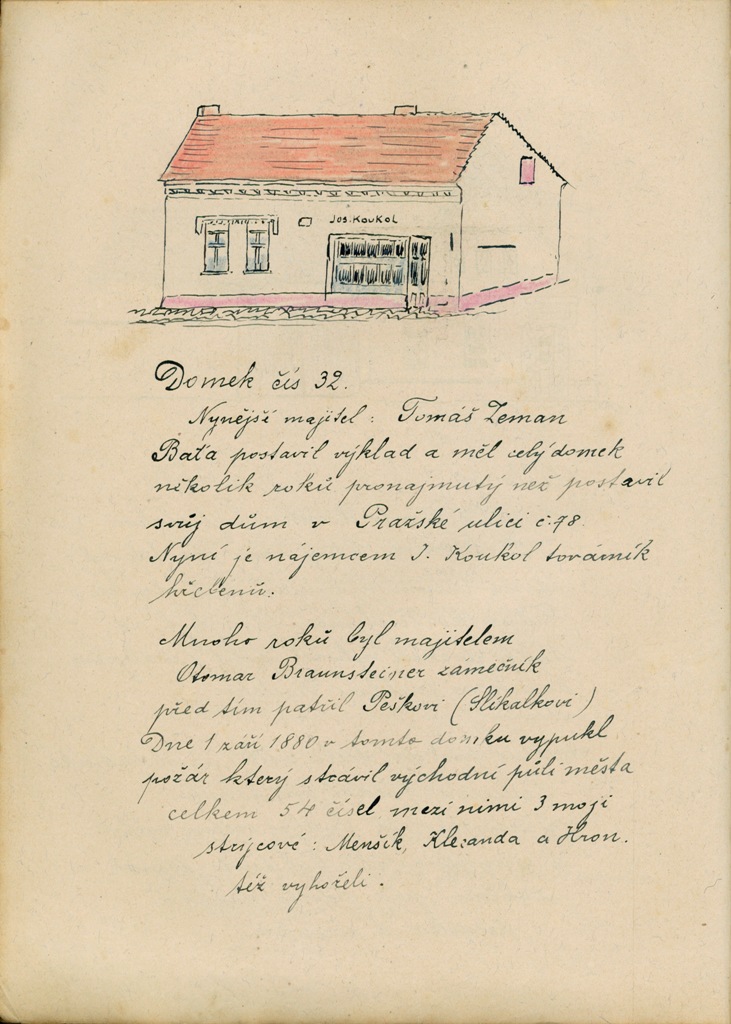 JOS. KOUKOL
Domek čís 32.
Nynější majitel: Tomáš Zeman
Baťa postavil výklad a měl celý domek
několik roků pronajmutý než postavil
svůj dům v Pražské ulici č. 78.
Nyní je nájemcem J. Koukol továrník
hřebenů.
Mnoho roků byl majitelem
Otomar Braunsteiner zámečník
před tím patřil Peškovi (Slikalkovi)
Dne 1 září 1880 v tomto domku vypukl
požár který strávil východní půli města
celkem 54 čísel mezi nimi 3 moji
strýcové: Menšík, Klecanda a Hron.
též vyhořeli.